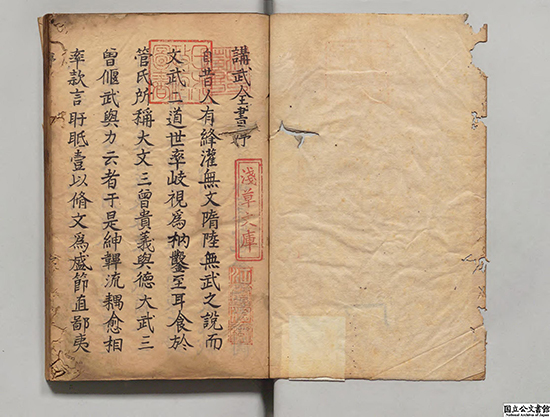 講武全書序
自昔人有絳灌無文隋陸無武之說而
文武二道世率歧視為枘鑿至耳食於
管氏所稱大文三曾貴義與德大武三
曾偃武與力云者于是紳鞸流耦愈相
率款言盱眂壹以脩文為盛節直鄙夷
淺草文庫
国立公文書館
National Archives of Japan